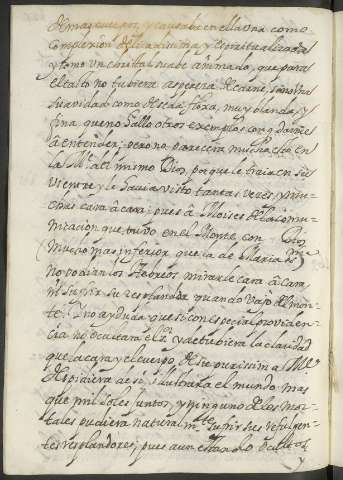 demas cuerpos, y causaba en ella una como
complexion delicadissima, y espiritualizada
y como un cristal suabe animado, que para
el tacto no tubiera aspereza de carne, sino una
suavidad como de seda floxa, muy blanda, y
fina, que no hallo otros exemplos con q darme
a entender; pero no parecera mucho esto en
la Me. del mismo Dios, porque le traia en su
vientre y le havia visto tantas veces, y mu-
chas cara a cara; pues a Moises de la comu-
nicacion que tuvo en el Monte con Dios
(mucho mas inferior que la de Maria SSma)
no podian los Hebreos mirarle cara a cara
ni sufrir su resplandor quando vajo del mon-
te. Y no ay duda que si con especial providen-
cia no ocultara el Sr. y detubiera la claridad
que la cara y el cuerpo de su purissima Me.
despidiera de si, illustrara el mundo mas
que mil soles juntos, y ninguno de los mor-
tales pudiera naturalmte. sufrir sus refulgen-
tes resplandores; pues aun estando ocultos
y